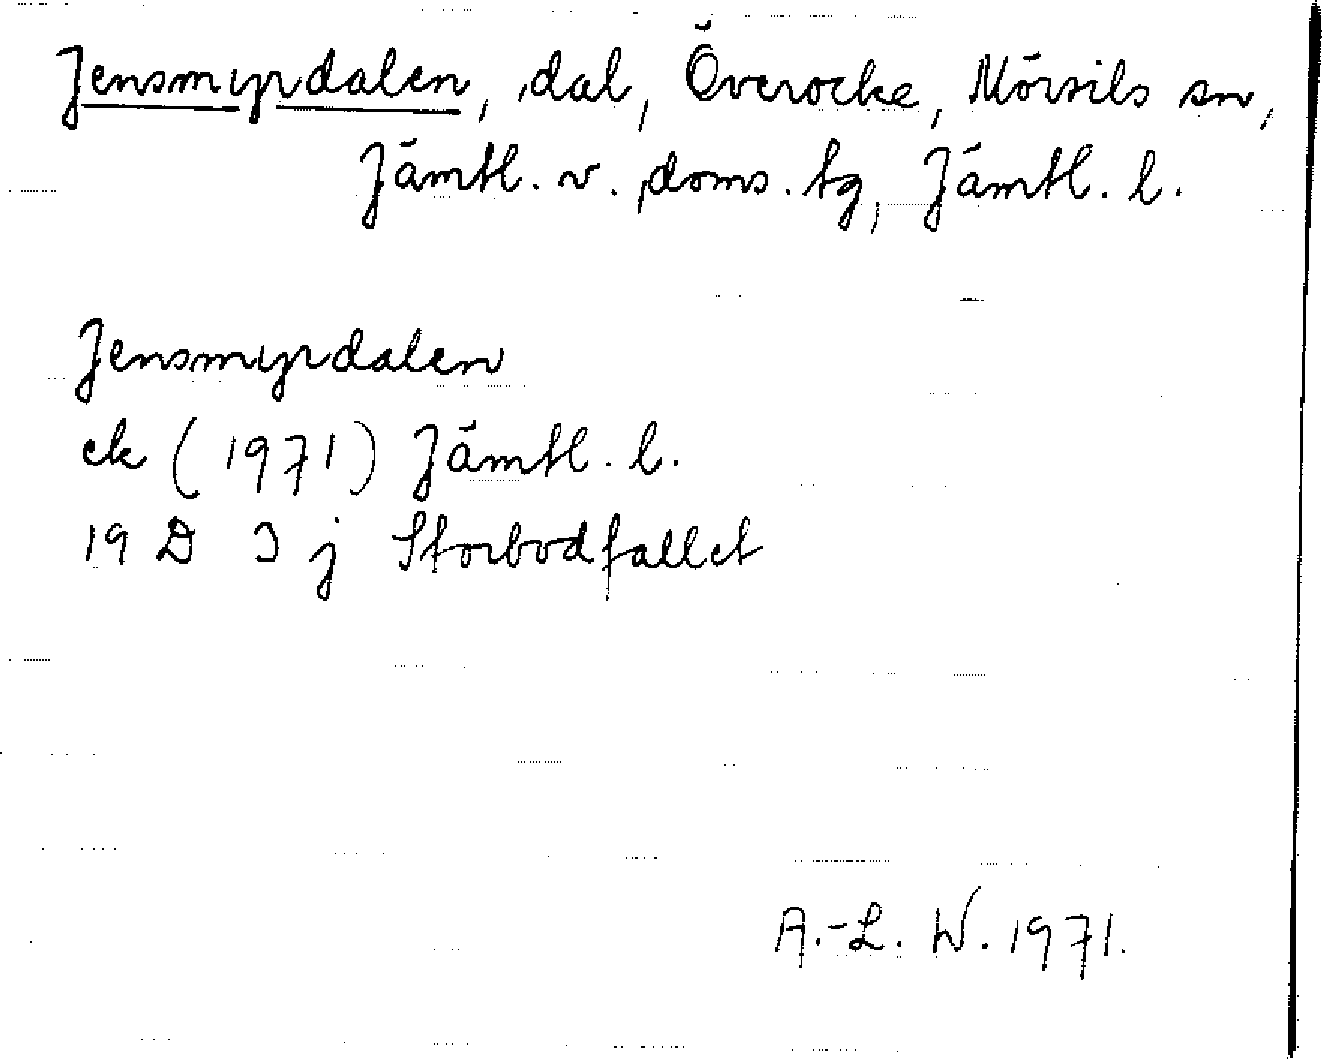 Jensmyrdalen, dal, Överocke, Mörsils sn,
Jämtl. v. doms. tg, Jämtl. l.
Jensmyrdalen
ek (1971) Jämtl. l.
19 D 3 j Storbodfallet
A.-L. W. 1971.